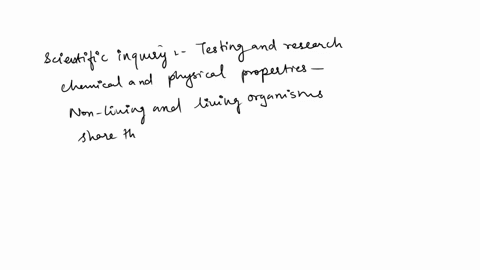 Scientific inquiry :- Testing and research
chemical and physical properties —
Non-living and living organisms
share th